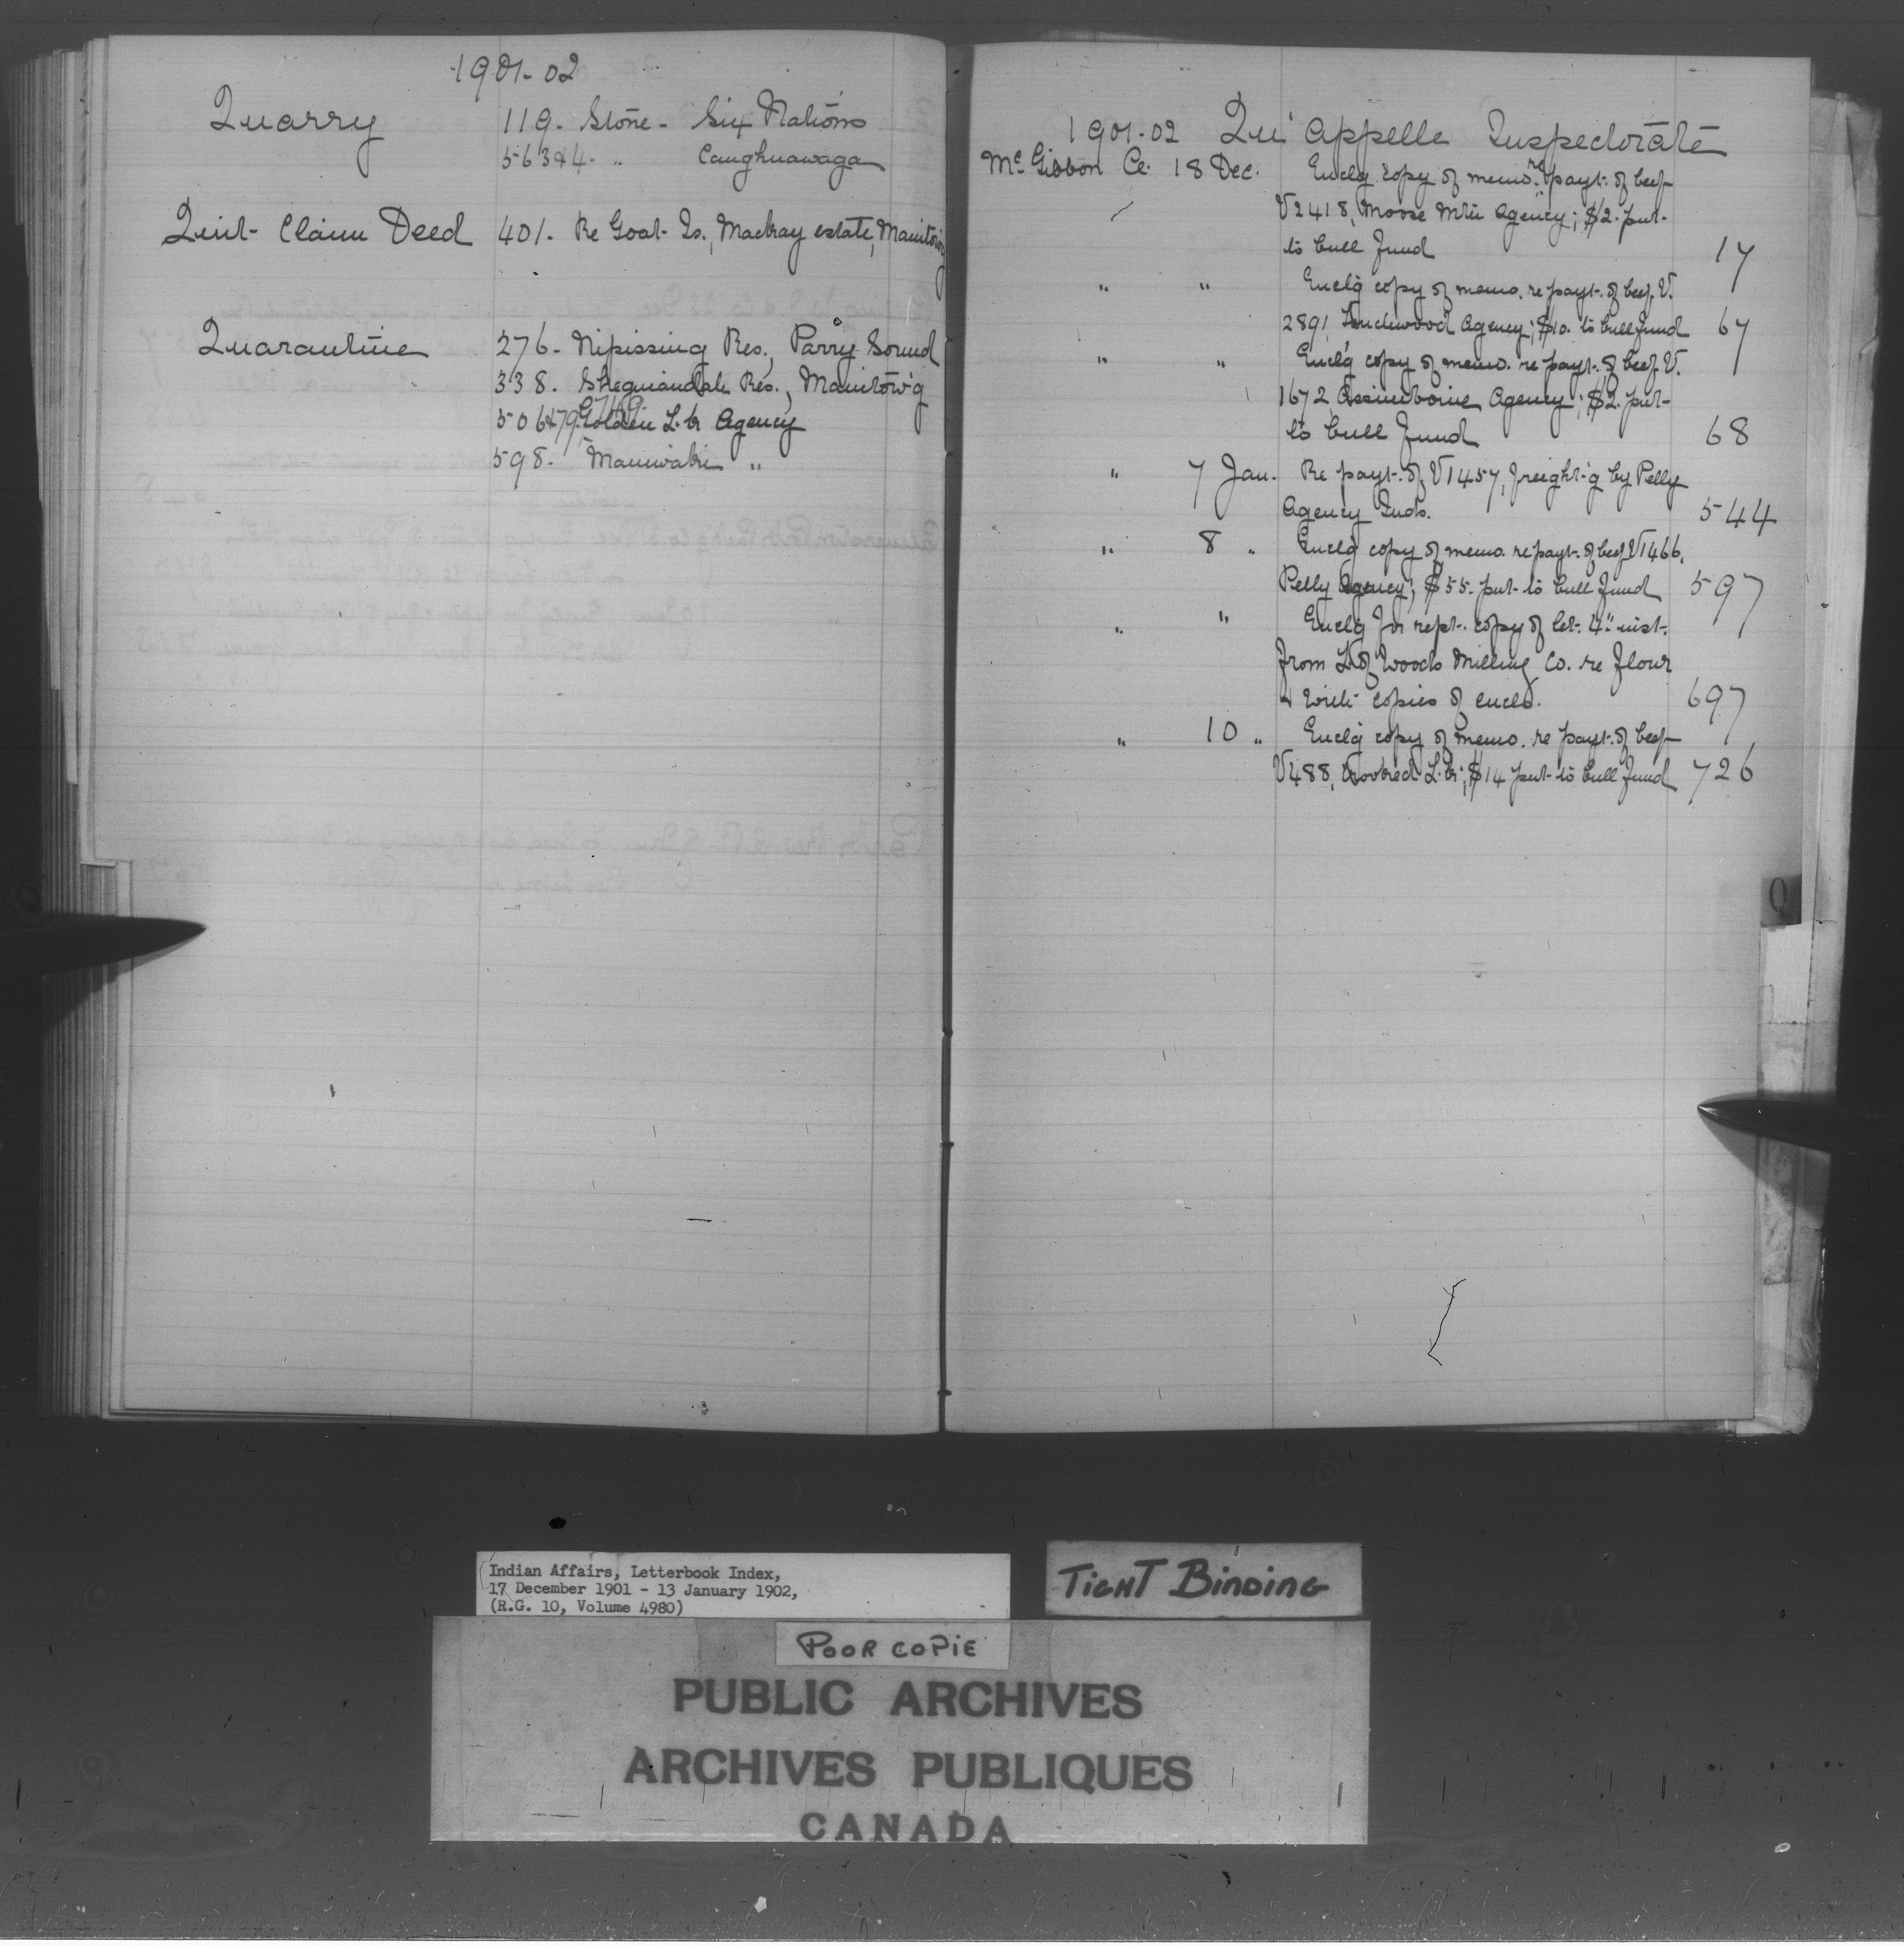 1901-02
Quarry 119. Stone - Six Nations
563 & 4. " Caughnawaga
Quit Claim Deed 401. Re Goat Is., Mackay estate, Manitow'g
Quarantine 276. Nipissing Res., Parry Sound
338. Sheguiandah Res., Manitow'g
506 & 79. Golden L. Agency
598. Maniwaki "
1901-02 Qu'Appelle Inspectorate
McGibbon 18 Dec. Enclg copy of memo. re payt. of beef
V2418, Moose Mtn Agency; $2. put
to bull fund 17
" " Enclg copy of memo. re payt. of beef V.
2891 Touchwood Agency; $10. to bull fund 67
" " Enclg copy of memo. re payt. of beef V.
1672 Assiniboine Agency; $2. put
to bull fund 68
" 7 Jan. Re payt. of V1457, freight'g by Pelly
Agency Inds. 544
" 8 " Enclg copy of memo. re payt. of beef V1466,
Pelly Agency; $55. put to bull fund 597
" " Enclg for rept. copy of let. 4" inst.
from L. of Woods Milling Co. re flour
& with copies of encls. 697
" 10 " Enclg copy of memo. re payt. of beef
V488, Crooked L.; $14 put to bull fund 726
Q
Indian Affairs, Letterbook Index,
17 December 1901 - 13 January 1902,
(R.G. 10, Volume 4980)
TIGHT BINDING
POOR COPIE
PUBLIC ARCHIVES
ARCHIVES PUBLIQUES
CANADA